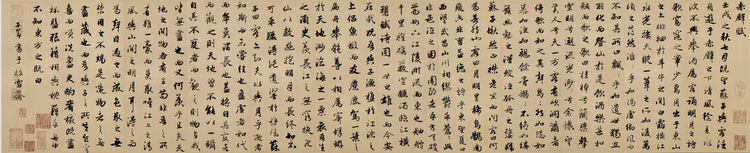 赤壁賦
壬戌之秋七月既望蘇子與客泛
舟遊于赤壁之下清風徐來水
波不興舉酒屬客誦明月之詩
歌窈窕之章少焉月出於東山之
上徘徊於斗牛之間白露橫江
水光接天縱一葦之所如凌萬
頃之茫然浩浩乎如馮虛御風
而不知其所止飄飄乎如遺世獨立
羽化而登仙於是飲酒樂甚扣
舷而歌之歌曰桂棹兮蘭槳擊
空明兮泝流光渺渺兮余懷望
美人兮天一方客有吹洞簫者
倚歌而和之其聲嗚嗚然如怨
如慕如泣如訴餘音嫋嫋不絕如縷
舞幽壑之潛蛟泣孤舟之嫠婦
蘇子愀然正襟危坐而問客曰何
為其然也客曰月明星稀烏鵲南
飛此非曹孟德之詩乎東望夏口
西望武昌山川相繆鬱乎蒼蒼此
非孟德之困於周郎者乎方其破
荊州下江陵順流而東也舳艫
千里旌旗蔽空釃酒臨江橫
槊賦詩固一世之雄也而今安
在哉況吾與子漁樵於江渚之
上侶魚蝦而友麋鹿駕一葉之
扁舟舉匏樽以相屬寄蜉蝣
於天地渺滄海之一粟哀吾生
之須臾羨長江之無窮挾飛
仙以遨遊抱明月而長終知不
可乎驟得託遺響於悲風蘇
子曰客亦知夫水與月乎逝者
如斯而未嘗往也盈虛者如代
而卒莫消長也蓋將自其變者
而觀之則天地曾不能以一瞬
自其不變者而觀之則物與我
皆無盡也而又何羨乎且夫天
地之間物各有主苟非吾之所
有雖一毫而莫取惟江上之清
風與山間之明月耳得之而
為聲目遇之而成色取之無
禁用之不竭是造物者之無
盡藏也而吾與子之所共食客
喜而笑洗盞更酌肴核既盡
杯盤狼籍相與枕藉乎舟中
不知東方之既白
子昂書于松雪齋